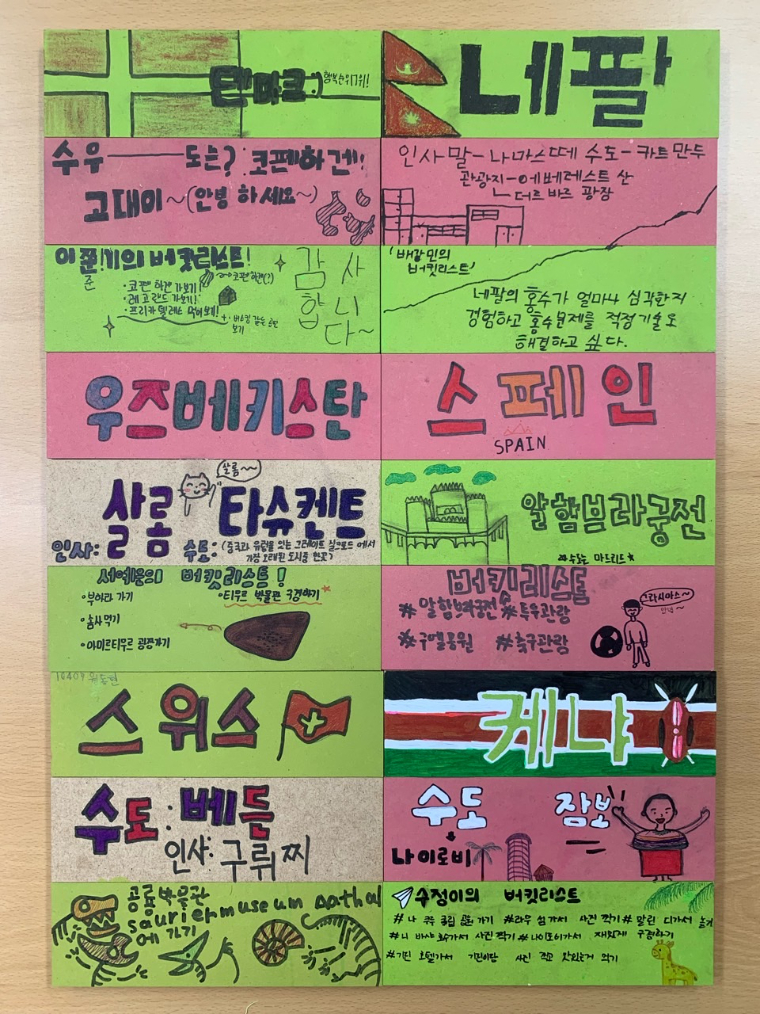 덴마크
행복순위 1위!
수우──도는? 코펜하겐!
고대이~(안녕하세요~)
이준기의 버킷리스트!
준
·코펜하겐 가보기
·레고랜드 가보기!
·프리카델레스 먹어보기!
감사
합니
다~
네팔
인사말-나마스떼 수도-카트만두
관광지-에베레스트 산
더르바르 광장
'배강민의
버킷리스트'
네팔의 홍수가 얼마나 심각한지
경험하고 홍수문제를 적정기술로
해결하고 싶다.
우즈베키스탄
살롬~~
인사: 살롬 수도: 타슈켄트
(중국과 유럽을 잇는 그레이트 실크로드에서
가장 오래된 도시중 한곳)
서예본의 버킷리스트!
·부하라 가기
·티무르 박물관 구경하기
·춤사 먹기
·아미르티무르 광장가기
스페인
SPAIN
알함브라궁전
수도는 마드리드
버킷리스트
#알함브라궁전 #투우관람
#구엘공원 #축구관람
그라시아스~
안녕~
스위스
수도:베른
인사: 구뤼찌
공룡박물관
sauriermuseum aathal
에 가기
케냐
수도 잠보
나이로비
수정이의 버킷리스트
가기 #라무 섬가서 사진 찍기 #말린디가서 놀기
가서 사진 찍기 #나이로비가서 재밌게 구경하기
#기린 호텔가서 기린이랑 사진 찍고 맛있는거 먹기